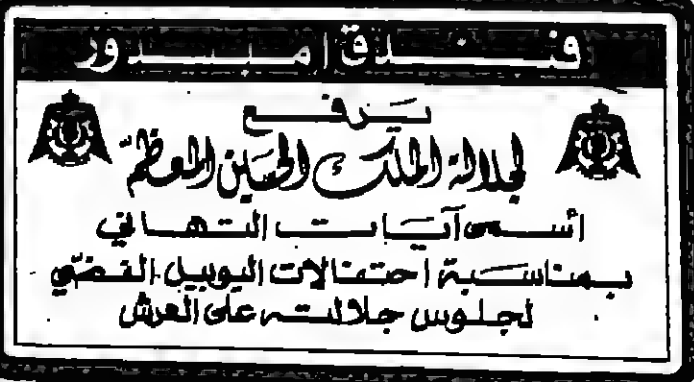 فندق امبسدور
يرفع
لجلالة الملك الحسين المعظم
أسمى آيات التهاني
بمناسبة احتفالات اليوبيل الفضّي
لجلوس جلالته على العرش